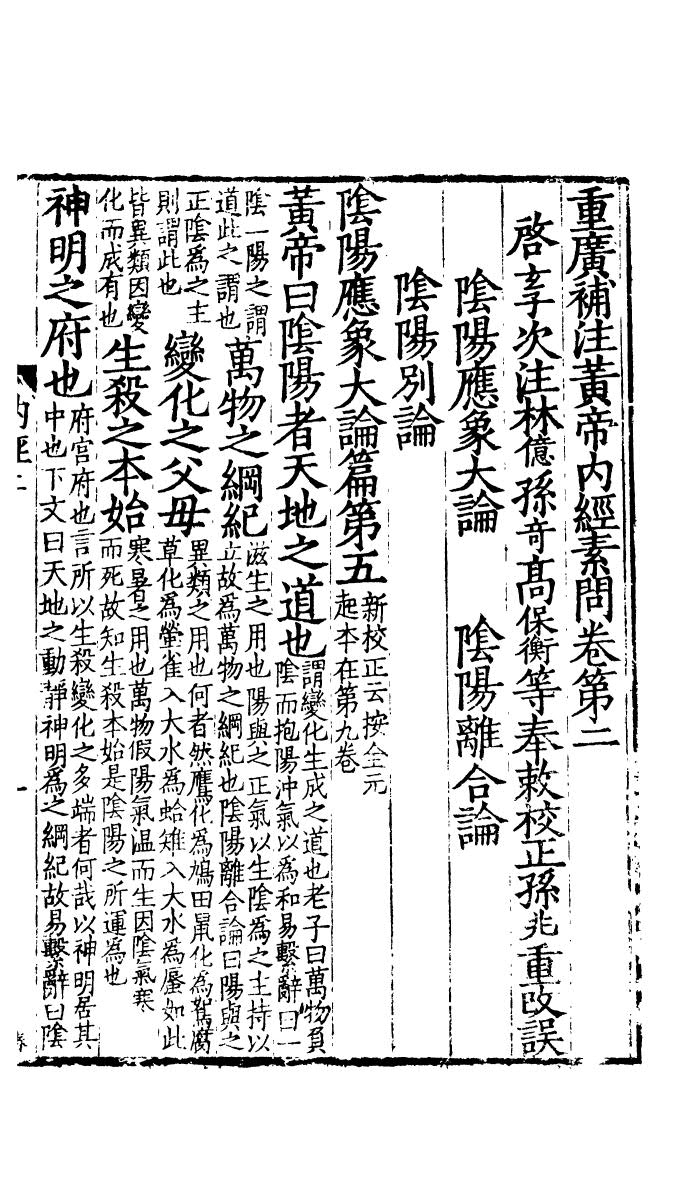 重廣補注黃帝內經素問卷第二
啓玄子次注林億孫奇高保衡等奉敕校正孫兆重改誤
陰陽應象大論 陰陽離合論
陰陽別論
陰陽應象大論篇第五
新校正云按全元
起本在第九卷
黃帝曰陰陽者天地之道也
謂變化生成之道也老子曰萬物負
陰而抱陽沖氣以爲和易繫辭曰一
陰一陽之謂
道此之謂也
萬物之綱紀
滋生之用也陽與之正氣以生陰爲之主持以
立故爲萬物之綱紀也陰陽離合論曰陽與之
正陰爲之主
則謂此也
變化之父母
異類之用也何者然鷹化爲鳩田鼠化爲鴽腐
草化爲螢雀入大水爲蛤雉入大水爲蜃如此
皆異類因變
化而成有也
生殺之本始
寒暑之用也萬物假陽氣温而生因陰氣寒
而死故知生殺本始是陰陽之所運爲也
神明之府也
府宫府也言所以生殺變化之多端者何哉以神明居其
中也下文曰天地之動靜神明爲之綱紀故易繫辭曰陰
內經二
一